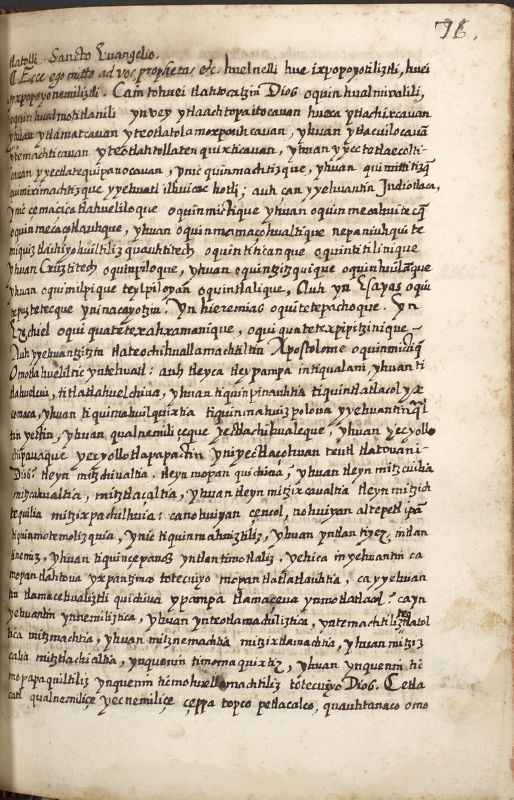 76.
tlatolli Sancto Euangelio.
¶ Ecce ego mitto ad vos, prophetas, etc. huelnelli hue ixpopoyotiliztli, huei
yxpopoyonemiliztli. Ca in tohuei tlahtocatzin Dios oquin hualmixalili,
oquin hualmotitlanili yn vey ytlaachtopaitocauan huera ytlachixcauan
yhuan ytlamatcauan yteotlatolamoxpouhcauan, yhuan ytlacuilocauan
ytemachticauan yteotlahtollatenquixticauan, yhuan yyectetlaecolti-
cauan yyectlatequipanocauan, ynic quinmachtizque, yhuan quimittitizq
quimiximachtizque yyehuatl ilhuicac hotli; auh can yyehuantin Indiotlaca,
ynic cemacica tlahueliloque oquinmictique yhuan oquinmecahuitecq
oquinmecacotlauhque, yhuan oquinmamacohualtique nepaniuhqui te
miquiztlachiyohuiltiliz quauhtitech oquintihticanque oquintitilinique
yhuan Cruztitech oquinpiloque, yhuan oquintzitzquique oquinhuilanque
yhuan oquimilpique teylpilopan oquintlalique, Auh yn Esayas oqui
tepuzteteque yninacayotzin. Yn hieremias oquitetepachoque. Yn
Ezechiel oqui quatetexahxamanique, oqui quatetexpipitzinique-
Auh yyehuantzitzin tlateochihuallamachtiltin Apostolome oquinmictiq
Omotlahueliltic yntehuatl: auh tleyca tleypampa intiqualani, yhuan ti
tlahuelcui, titlatlahuelchiua, yhuan tiquinpinauhtia tiquintlatlacol
yhuan tiquimahuilquixtia tiquinmahuizpoloua yyehuantin
yhuan qualnemiliceque yectlachihualeque, yhuan yecyollo
chipauaque yecyollotlapapaltin yniyectlacohuan teutl tlatouani-
Dios? tleyn mitzchiualtia, tleyn mopan quichiua, yhuan tleyn mitzcuilia
mitzcahualtia, mitztlacaltia, yhuan tleyn mitzixcaualtia tleyn mitzich
tequilia mitzixpachilhuia: canohuiyan cencol, nohuiyan altepetl ipan
tiquinmotemolizquia, ynic tiquinmahuiztiliz, yhuan yntlan tiyez, intlan
tinemiz, yhuan tiquincepanoz yntlantimotlaliz, yehica in yehuantin ca
mopan tlahtoua yxpantzinco totecuiyo mopan tlatlatlauhtia, ca yyehuan
tin tlamacehualiztli quichiua ypampa tlamaceua ynmotlatlacol: cayn
yehuantin ynnemiliztica, yhuan ynteotlamachiliztica, yntemachtiliz teotlatol
tica mitzmachtia, yhuan mitznemachtia mitzixtlamachtia, yhuan mitziz
calia mitztlachialtia, ynquenin timomaquixtiz, yhuan ynquenin ti
mopapaquiltiliz ynquenin timohuellamachtiliz totecuiyo Dios. Cetla
catl qualnemilice yecnemilice ceppa topco petlacalco, quauhtanaco omo